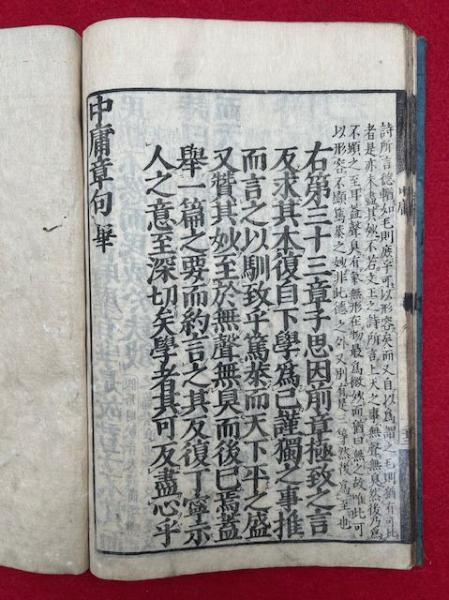 詩所言德輶如毛則庶乎可以形容矣而又自以爲謂之毛則猶有可比
者是亦未盡其妙不若文王之詩所言上天之事無聲無臭然後乃爲
不顯之至耳蓋聲臭有氣無形在物最爲微妙而猶曰無之故唯此可
以形容不顯篤恭之妙非此德之外又別有是三等然後爲至也
右第三十三章子思因前章極致之言
反求其本復自下學爲己謹獨之事推
而言之以馴致乎篤恭而天下平之盛
又贊其妙至於無聲無臭而後已焉蓋
舉一篇之要而約言之其反復丁寧示
人之意至深切矣學者其可不盡心乎
中庸章句畢